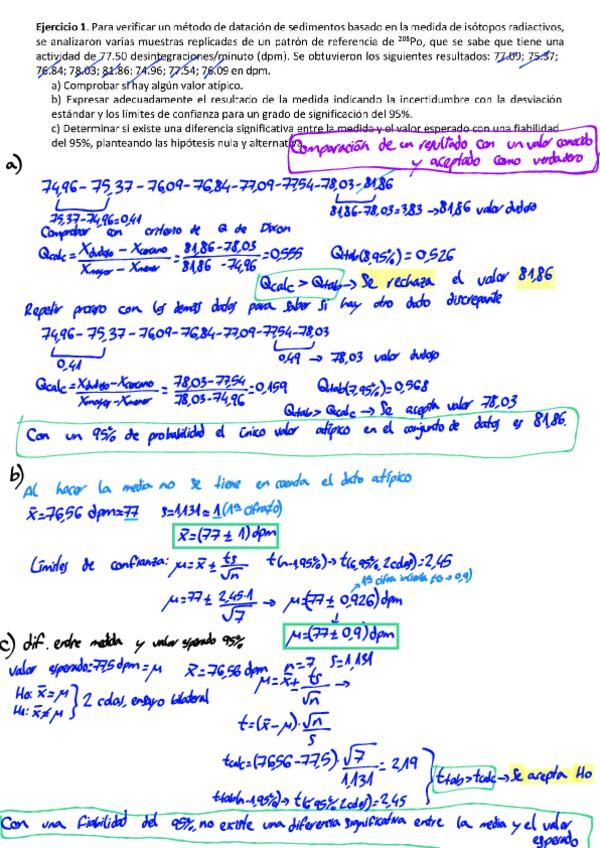 Ejercicio 1. Para verificar un método de datación de sedimentos basado en la medida de isótopos radiactivos,
se analizaron varias muestras replicadas de un patrón de referencia de ²⁰⁸Po, que se sabe que tiene una
actividad de 77.50 desintegraciones/minuto (dpm). Se obtuvieron los siguientes resultados: 77.09; 75.37;
76.84; 78.03; 81.86; 74.96; 77.54; 76.09 en dpm.
a) Comprobar si hay algún valor atípico.
b) Expresar adecuadamente el resultado de la medida indicando la incertidumbre con la desviación
estándar y los límites de confianza para un grado de significación del 95%.
c) Determinar si existe una diferencia significativa entre la medida y el valor esperado con una fiabilidad
del 95%, planteando las hipótesis nula y alternativa.
Comparación de un resultado con un valor conocido
y aceptado como verdadero
a)
74,96 - 75,37 - 76,09 - 76,84 - 77,09 - 77,54 - 78,03 - 81,86
75,37-74,96=0,41 81,86-78,03=3,83 → 81,86 valor dudoso
Comprobar con criterio de Q de Dixon
Qcalc = (Xdudoso - Xcercano)/(Xmayor - Xmenor) = (81,86-78,03)/(81,86-74,96) = 0,555 Qtab(8,95%) = 0,526
Qcalc > Qtab → Se rechaza el valor 81,86
Repetir proceso con los demás datos para saber si hay otro dato discrepante
74,96 - 75,37 - 76,09 - 76,84 - 77,09 - 77,54 - 78,03
0,41 0,49 → 78,03 valor dudoso
Qcalc = (Xdudoso - Xcercano)/(Xmayor - Xmenor) = (78,03-77,54)/(78,03-74,96) = 0,159 Qtab(7,95%) = 0,568
Qtab > Qcalc → Se acepta valor 78,03
Con un 95% de probabilidad el único valor atípico en el conjunto de datos es 81,86.
b)
Al hacer la media no se tiene en cuenta el dato atípico
x̄=76,56 dpm=77 s=1,131=1 (1ª cifra≠0)
x̄=(77 ± 1) dpm
Límites de confianza: μ = x̄ ± ts/√n t(n-1,95%) → t(6,95%, 2 colas)=2,45
μ=77 ± 2,45·1/√7 → μ=(77 ± 0,926) dpm
μ=(77 ± 0,9) dpm
c) dif. entre medida y valor esperado 95%
valor esperado=77,5 dpm=μ x̄=76,56 dpm n=7 s=1,131
H₀: x̄=μ
H₁: x̄≠μ } 2 colas, ensayo bilateral
μ = x̄ ± ts/√n →
t=(x̄-μ)·√n/s
tcalc=(76,56-77,5)·√7/1,131 = 2,19
ttab(n-1,95%) → t(6,95%, 2 colas)=2,45
ttab > tcalc → Se acepta H₀
Con una fiabilidad del 95%, no existe una diferencia significativa entre la media y el valor
esperado